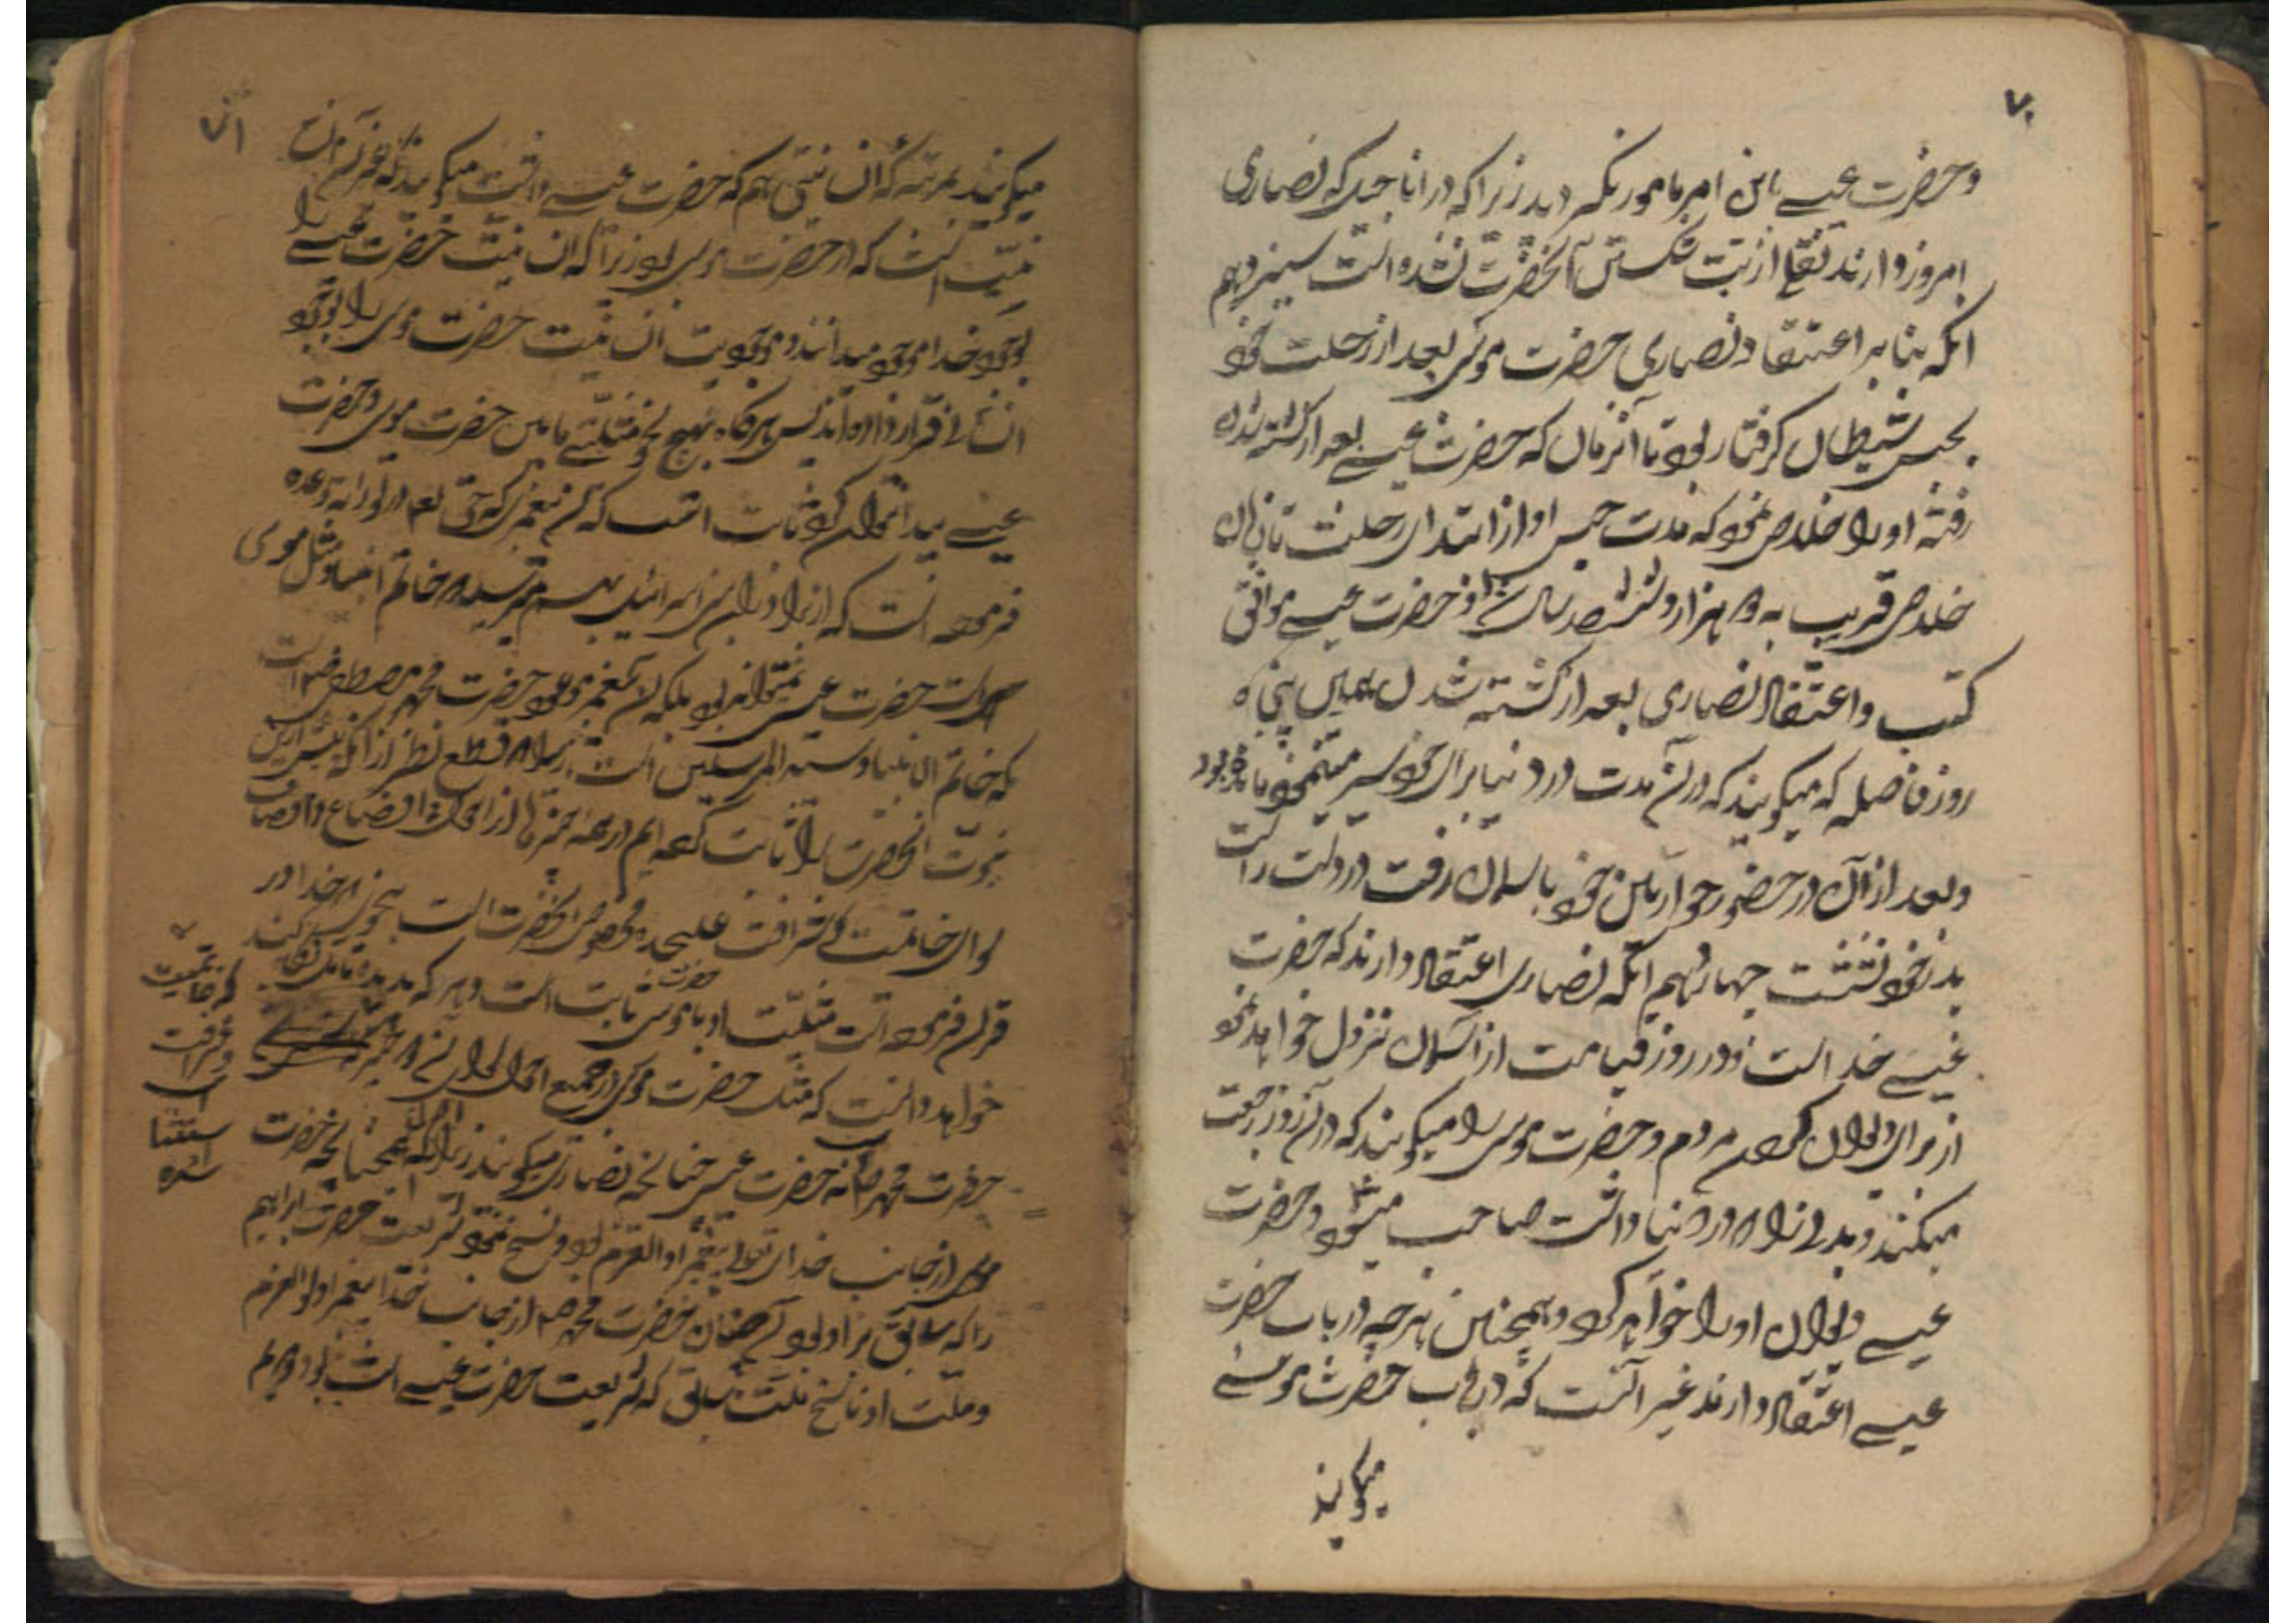 ۷۰
وحضرت عیسے باین امر مامور نگردید زیرا که در اناجیلی که نصاری
امروز دارند نقلی از بت شکستن آنحضرت نشده است سیزدهم
انکه بنا بر اعتقاد نصاری حضرت موسی بعد از رحلت خود
بحبس شیطان گرفتار بود تا آنزمان که حضرت عیسے بعد از کشته شدن
رفته او را خلاص نمود که مدت حبس او از ابتدای رحلت تا زمان
خلاص قریب به هزار و ششصد سال و حضرت عیسے موافق
کتب واعتقاد نصاری بعد از کشته شدن همین پنجاه
روز فاصله که میگویند که در آن مدت در دنیا برای خود سیر مینمود مانده بود
وبعد از آن در حضور حواریین خود باسمان رفت در دست راست
پدر خود نشست چهاردهم انکه نصاری اعتقاد دارند که حضرت
عیسے خداست و در روز قیامت از آسمان نزول خواهد نمود
از برای دیوان کردن مردم و حضرت موسی را میگویند که در آن روز رجعت
میکند و بدنی را که در دنیا داشت صاحب میشود و حضرت
عیسے دیوان او را خواهد کرد و همچنین هر چه در باب حضرت
عیسے اعتقاد دارند غیر آنست که در باب حضرت موسے
میگویند
۷۱
میگویند بمرتبه که آن نیتی هم که حضرت عیسے داشت میگویند که غیر از آن
نیت است که حضرت موسی بود زیرا که آن نیت حضرت عیسے را
بوجود خدا موجود میدانند و موجودیت آن نیت حضرت موسی را بوجود
انسانی قرار داده اند پس هرگاه بهیچ نحو مثلیتی مابین حضرت موسی و حضرت
عیسے پیدا نتوان کرد ثابت است که آن پیغمبری که حق تعالی در توراة وعده
فرموده است که از برادران بنی اسرائیل بهم میرسد و خاتم انبیا و مثل موسی
است حضرت عیسی نمیتواند بود بلکه آن پیغمبر موعود حضرت محمد مصطفی است
که خاتم الانبیا و سید المرسلین است زیرا که قطع نظر از انکه پیش ازین
نبوت آنحضرت را ثابت کرده ایم در همه چیز از اوضاع و اوصاف
سوای خاتمیت که شرافت علیحده مخصوص آنحضرت است بنحوی که خدا در
قرآن فرموده است مثلیت او با حضرت موسی ثابت است و هر که بدیده تامل نگاه کند
خواهد دانست که مثل حضرت موسی در جمیع احوال
که خاتمیت
و شرافت
است
استثنا
شده
حضرت محمد است نه حضرت عیسی چنانچه نصاری میگویند زیرا که همچنانچه حضرت
موسی از جانب خدای تعالی پیغمبر اولوالعزم بود و نسخ نمود شریعت حضرت ابراهیم
را که سابق بر او بود آنچنان حضرت محمد از جانب خدا پیغمبر اولوالعزم
و ملت او ناسخ ملت سابق که شریعت حضرت عیسے است بود